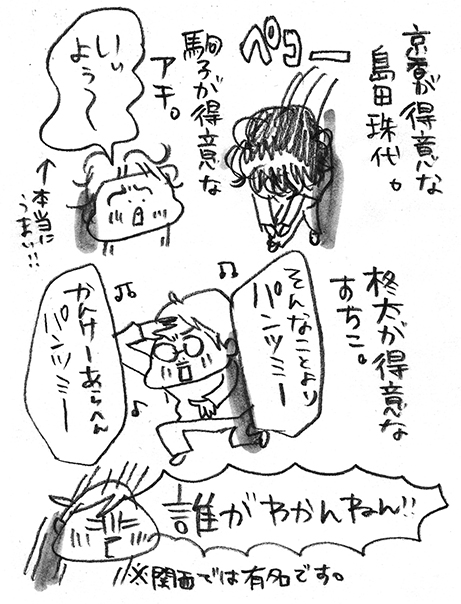 京香が得意な
島田珠代。
ペター
駒子が得意な
アキ。
いぃ
よぅ〜
↑本当に
うまい!!
柊太が得意な
すちこ。
そんなことより
パンツミー
かんけーあらへん
パンツミー
誰がわかんねん!!
※関西では有名です。